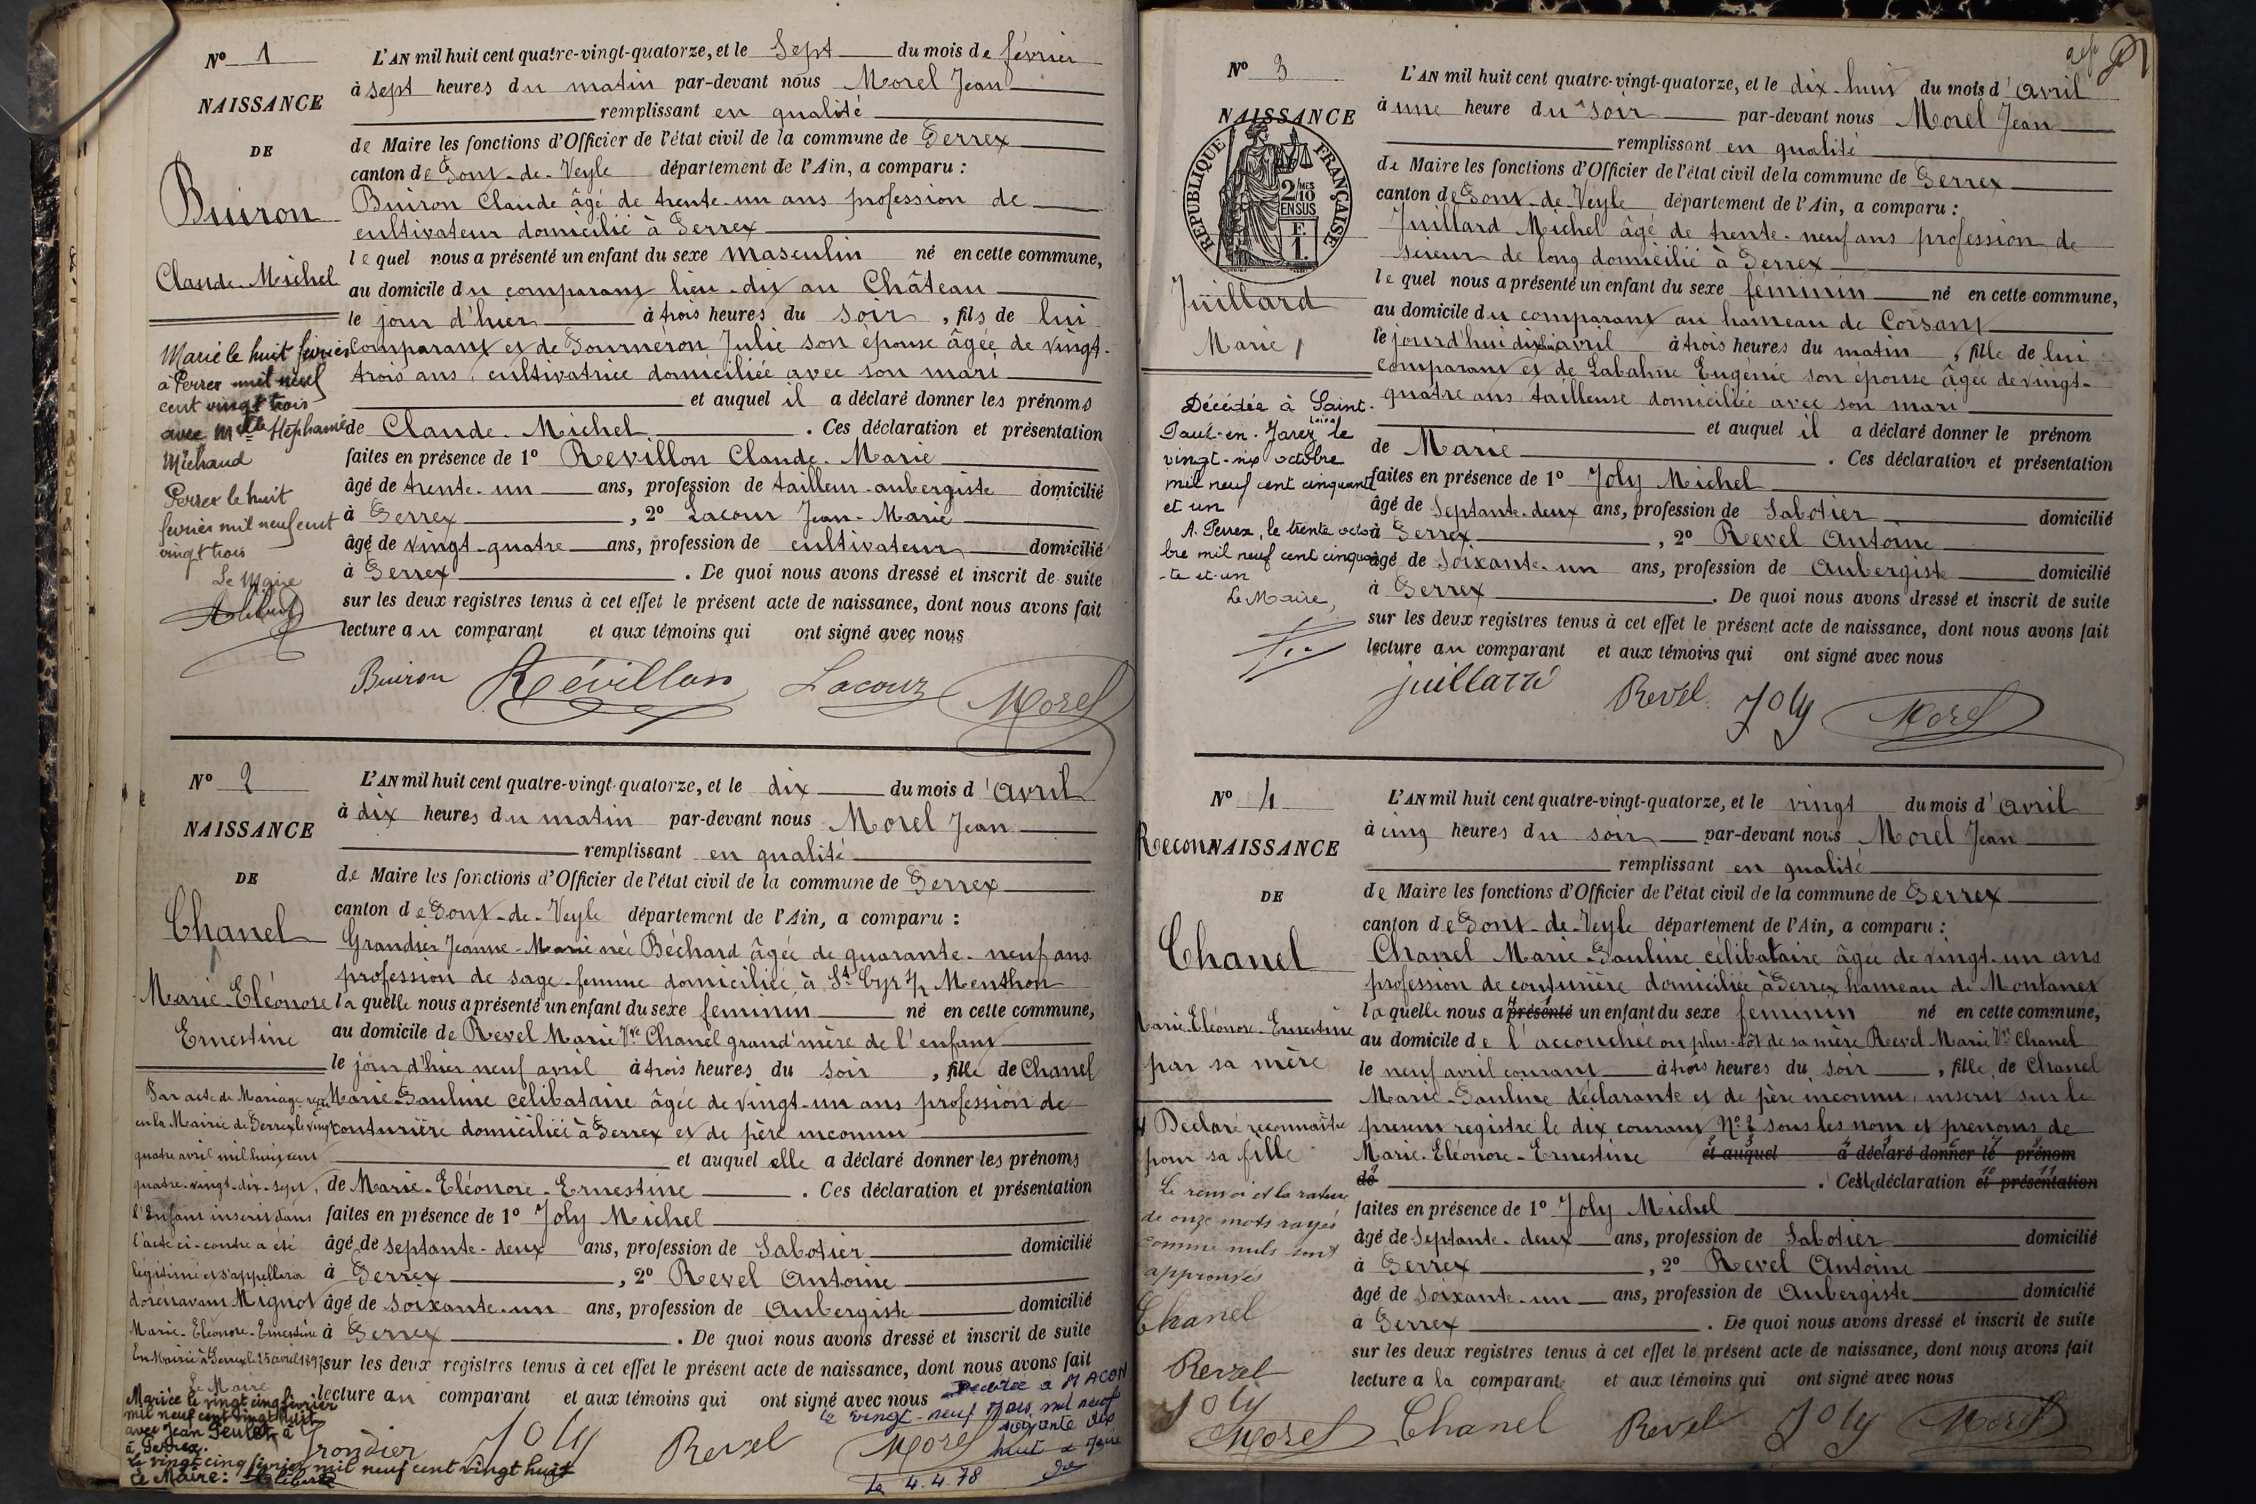 N° 1
NAISSANCE
DE
Buiron
Claude-Michel
Marié le huit février
à Perrex mil neuf
cent vingt trois
avec Melle Stéphanie
Michaud
Perrex le huit
février mil neuf cent
vingt trois
Le Maire
L'AN mil huit cent quatre-vingt-quatorze, et le Sept du mois de février
à sept heures du matin par-devant nous Morel Jean
remplissant en qualité
de Maire les fonctions d'Officier de l'état civil de la commune de Perrex
canton de Pont-de-Veyle département de l'Ain, a comparu :
Buiron Claude âgé de trente-un ans profession de
cultivateur domicilié à Perrex
lequel nous a présenté un enfant du sexe masculin né en cette commune,
au domicile du comparant lieu-dit au Château
le jour d'hier à trois heures du soir, fils de lui
comparant et de Tourneron Julie son épouse âgée de vingt-
trois ans, cultivatrice domiciliée avec son mari
et auquel il a déclaré donner les prénoms
de Claude-Michel. Ces déclaration et présentation
faites en présence de 1° Revillon Claude-Marie
âgé de trente-un ans, profession de tailleur-aubergiste domicilié
à Perrex, 2° Lacour Jean-Marie
âgé de vingt-quatre ans, profession de cultivateur domicilié
à Perrex. De quoi nous avons dressé et inscrit de suite
sur les deux registres tenus à cet effet le présent acte de naissance, dont nous avons fait
lecture au comparant et aux témoins qui ont signé avec nous
Buiron Révillon Lacour Morel
N° 2
NAISSANCE
DE
Chanel
Marie-Eléonore
Ernestine
Par acte de Mariage reçu
en la Mairie de Perrex le vingt
quatre avril mil huit cent
quatre-vingt-dix-sept,
l'Enfant inscrit dans
l'acte ci-contre a été
légitimé et s'appellera
dorénavant Mignot
Marie-Eléonore-Ernestine
En Mairie à Perrex le 25 avril 1897
Le Maire
Mariée le vingt cinq février
mil neuf cent vingt huit
avec Jean Peulet à
à Perrex.
Le vingt cinq février mil neuf cent vingt huit
Le Maire :
L'AN mil huit cent quatre-vingt-quatorze, et le dix du mois d'avril
à dix heures du matin par-devant nous Morel Jean
remplissant en qualité
de Maire les fonctions d'Officier de l'état civil de la commune de Perrex
canton de Pont-de-Veyle département de l'Ain, a comparu :
Grandier Jeanne-Marie née Béchard âgée de quarante-neuf ans
profession de sage-femme domiciliée à St Cyr s/ Menthon
laquelle nous a présenté un enfant du sexe féminin né en cette commune,
au domicile de Revel Marie Vve Chanel grand'mère de l'enfant
le jour d'hier neuf avril à trois heures du soir, fille de Chanel
Marie-Pauline célibataire âgée de vingt-un ans profession de
couturière domiciliée à Perrex et de père inconnu
et auquel elle a déclaré donner les prénoms
de Marie-Eléonore-Ernestine. Ces déclaration et présentation
faites en présence de 1° Joly Michel
âgé de septante-deux ans, profession de Sabotier domicilié
à Perrex, 2° Revel Antoine
âgé de soixante-un ans, profession de Aubergiste domicilié
à Perrex. De quoi nous avons dressé et inscrit de suite
sur les deux registres tenus à cet effet le présent acte de naissance, dont nous avons fait
lecture au comparant et aux témoins qui ont signé avec nous
Décédée à MACON
le vingt-neuf Mars mil neuf
soixante dix
huit
Grandier Joly Revel Morel
Le 4.4.78
N° 3
NAISSANCE
RÉPUBLIQUE FRANÇAISE
2/10 MES
EN SUS
F.
1.
Juillard
Marie
Décédée à Saint-
Paul-en-Jarez (Loire) le
vingt-six octobre
mil neuf cent cinquante
et un
A Perrex, le trente octo
bre mil neuf cent cinquan
-te et un
Le Maire,
L'AN mil huit cent quatre-vingt-quatorze, et le dix-huit du mois d'avril
à une heure du soir par-devant nous Morel Jean
remplissant en qualité
de Maire les fonctions d'Officier de l'état civil de la commune de Perrex
canton de Pont-de-Veyle département de l'Ain, a comparu :
Juillard Michel âgé de trente-neuf ans profession de
scieur de long domicilié à Perrex
lequel nous a présenté un enfant du sexe féminin né en cette commune,
au domicile du comparant au hameau de Corsant
le jourd'hui dix huit avril à trois heures du matin, fille de lui
comparant et de Labalme Eugénie son épouse âgée de vingt-
quatre ans tailleuse domiciliée avec son mari
et auquel il a déclaré donner le prénom
de Marie. Ces déclaration et présentation
faites en présence de 1° Joly Michel
âgé de Septante-deux ans, profession de Sabotier domicilié
à Perrex, 2° Revel Antoine
âgé de Soixante-un ans, profession de Aubergiste domicilié
à Perrex. De quoi nous avons dressé et inscrit de suite
sur les deux registres tenus à cet effet le présent acte de naissance, dont nous avons fait
lecture au comparant et aux témoins qui ont signé avec nous
juillard Revel Joly Morel
N° 4
ReconNAISSANCE
DE
Chanel
Marie-Eléonore-Ernestine
par sa mère
Déclaré reconnaître
pour sa fille
Le renvoi et la rature
de onze mots rayés
comme nuls sont
approuvés
Chanel
Revel
Joly
Morel
L'AN mil huit cent quatre-vingt-quatorze, et le vingt du mois d'avril
à cinq heures du soir par-devant nous Morel Jean
remplissant en qualité
de Maire les fonctions d'Officier de l'état civil de la commune de Perrex
canton de Pont-de-Veyle département de l'Ain, a comparu :
Chanel Marie-Pauline célibataire âgée de vingt-un ans
profession de couturière domiciliée à Perrex hameau de Montanet
laquelle nous a présenté un enfant du sexe féminin né en cette commune,
au domicile de l'accouchée ou plus-tôt de sa mère Revel Marie Vve Chanel
le neuf avril courant à trois heures du soir, fille de Chanel
Marie-Pauline déclarante et de père inconnu, inscrit sur le
présent registre le dix courant N° 2 sous les nom et prénoms de
Marie-Eléonore-Ernestine et auquel a déclaré donner le prénom
de. Cette déclaration et présentation
faites en présence de 1° Joly Michel
âgé de Septante-deux ans, profession de Sabotier domicilié
à Perrex, 2° Revel Antoine
âgé de Soixante-un ans, profession de Aubergiste domicilié
à Perrex. De quoi nous avons dressé et inscrit de suite
sur les deux registres tenus à cet effet le présent acte de naissance, dont nous avons fait
lecture a la comparante et aux témoins qui ont signé avec nous
Chanel Revel Joly Morel